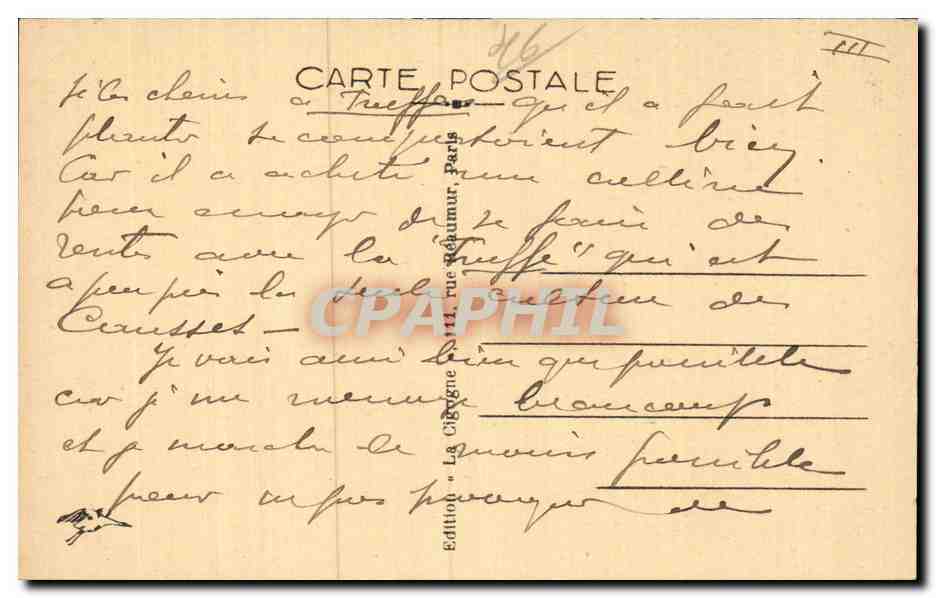 46
III
CARTE POSTALE
si les chênes à Truffes qu'il a fait
planter se comportaient bien.
Car il a acheté une colline
pour essayer de se faire des
rentes avec la "Truffe" qui est
a peu près la seule culture des
Causses —
Je vais aussi bien que possible
car je me ménage beaucoup
et je marche le moins possible
pour ne pas provoquer de
Edition « La Cigogne » 111, rue Réaumur, Paris
CPAPHIL